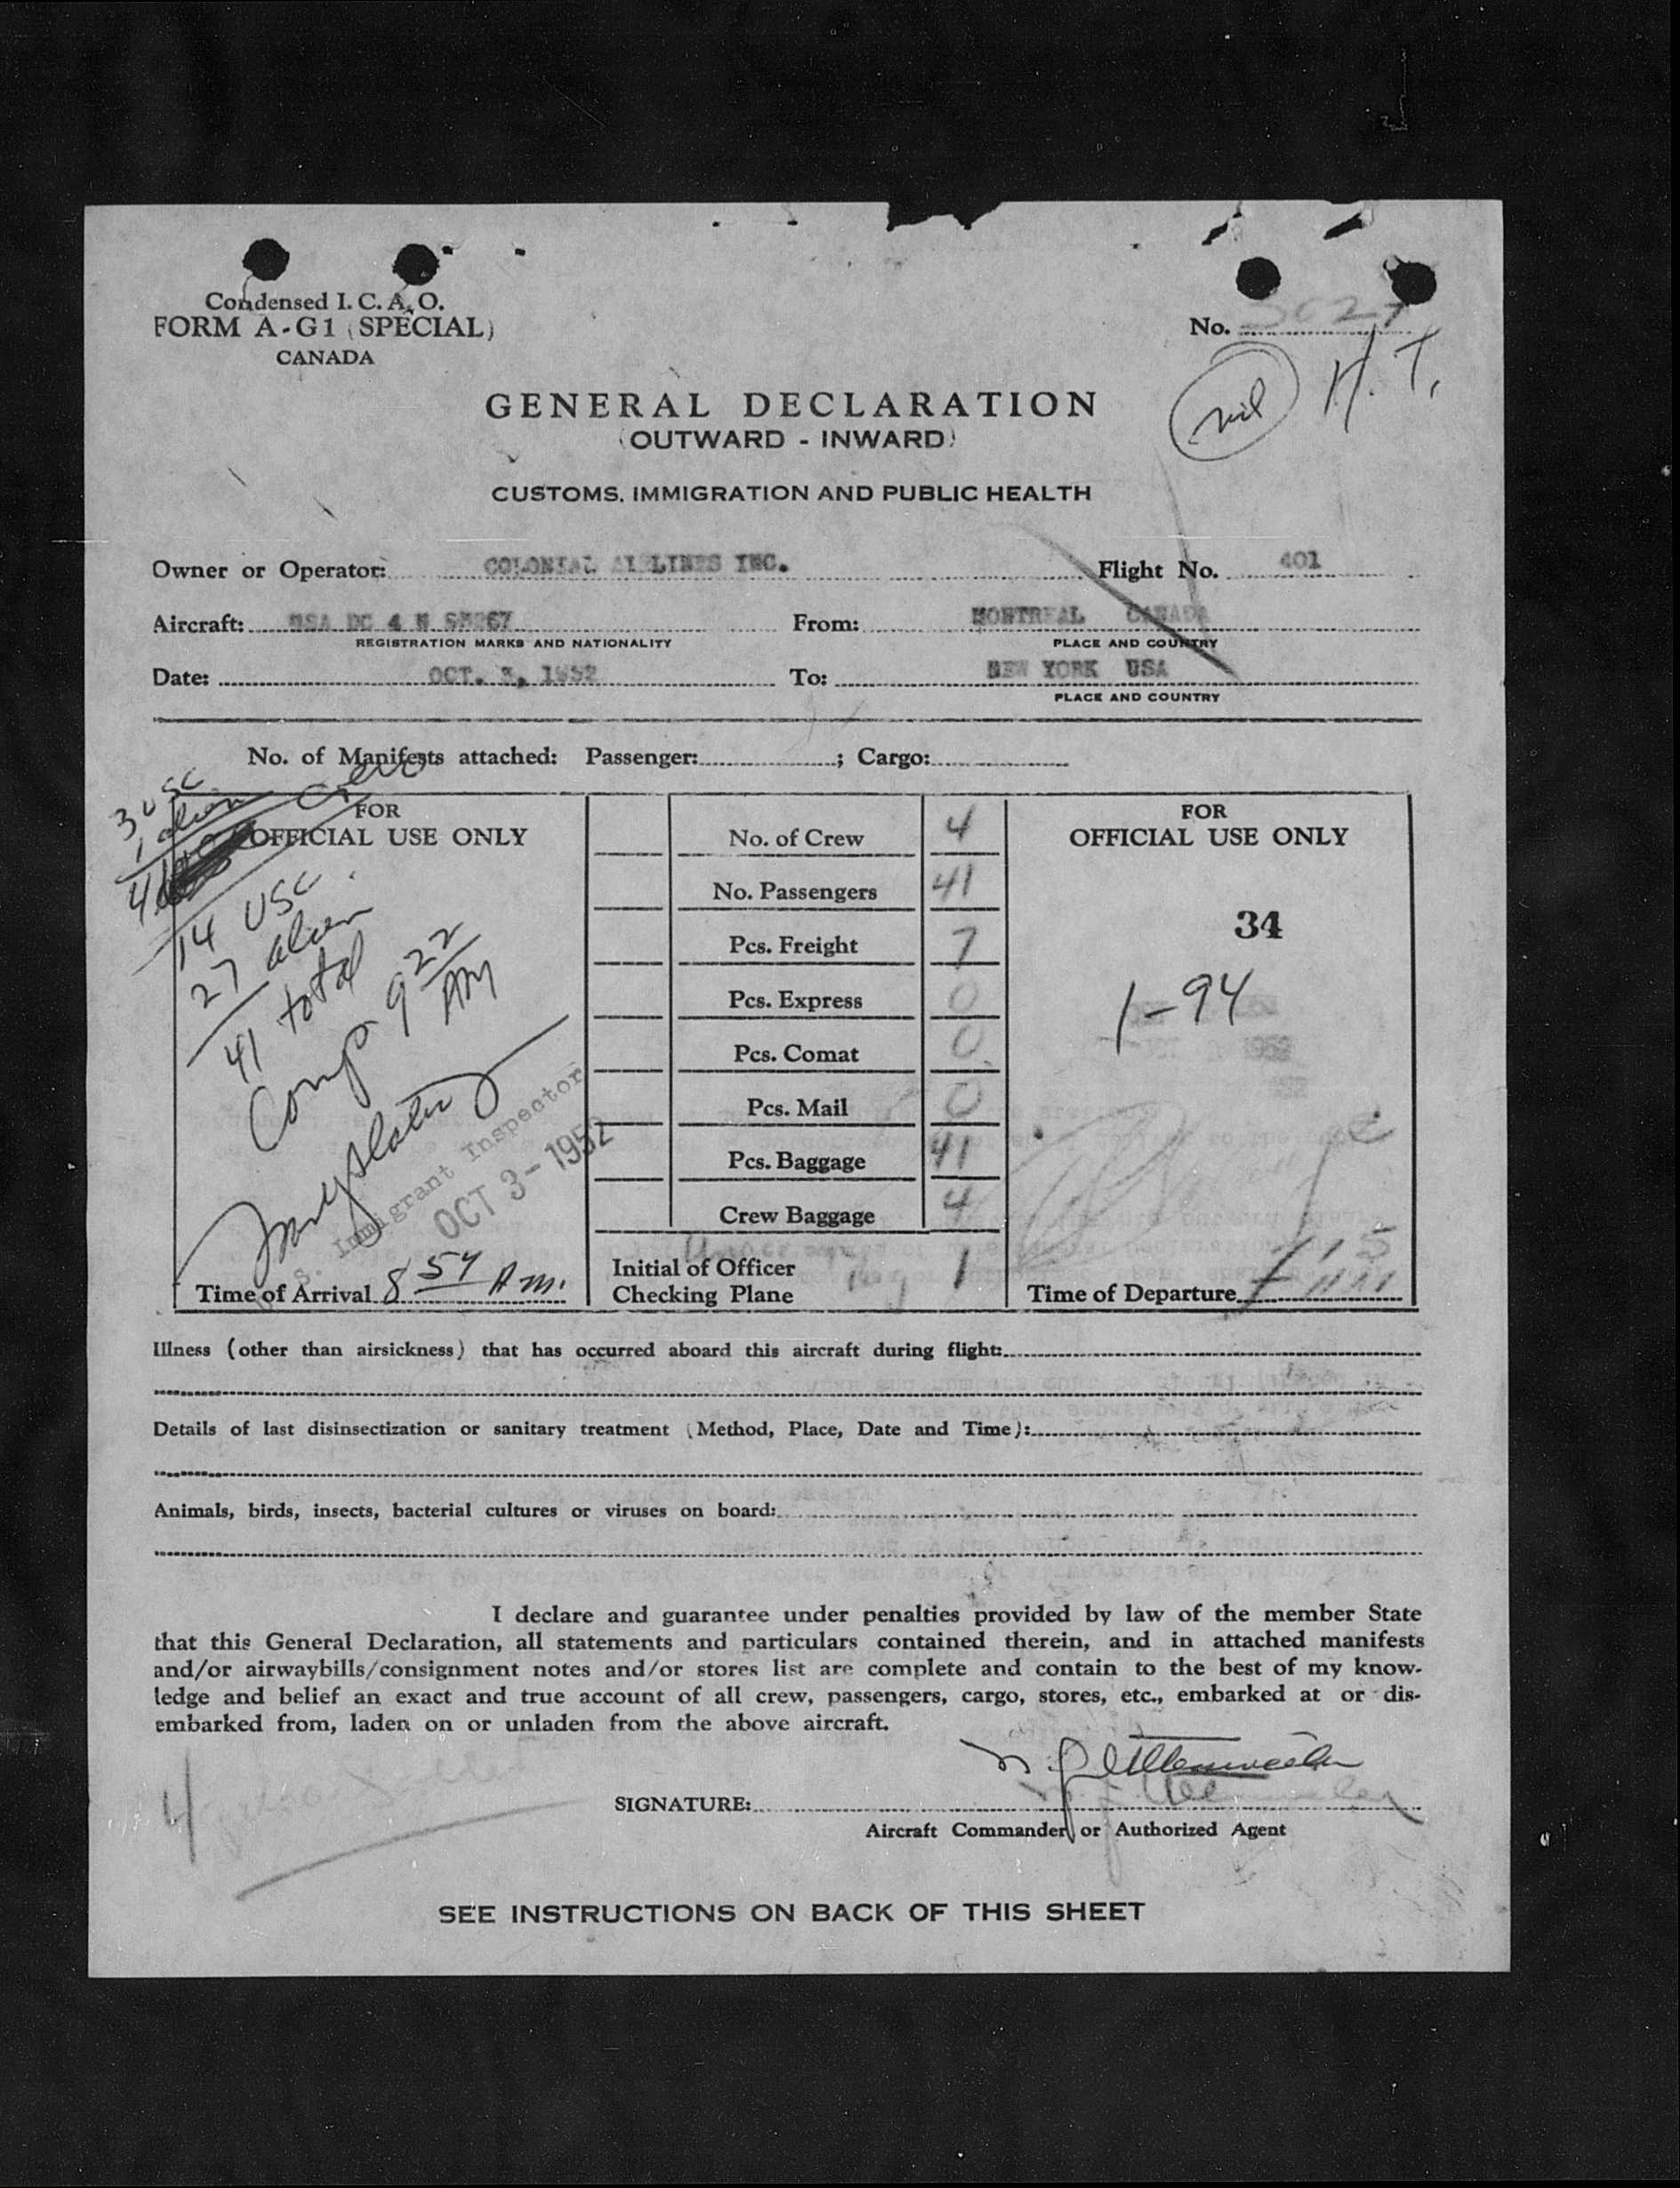 Condensed I. C. A. O.
FORM A-G1 (SPECIAL)
CANADA
No.
nil
H. T.
GENERAL DECLARATION
(OUTWARD - INWARD)
CUSTOMS, IMMIGRATION AND PUBLIC HEALTH
Owner or Operator: COLONIAL AIRLINES INC. Flight No. 401
Aircraft: USA DC 4 N From: MONTREAL CANADA
REGISTRATION MARKS AND NATIONALITY PLACE AND COUNTRY
Date: OCT. 3, 1952 To: NEW YORK USA
PLACE AND COUNTRY
No. of Manifests attached: Passenger: ; Cargo:
3 USC
1 alien
crew
4
FOR
OFFICIAL USE ONLY
14 USC
27 alien
41 total
Comp 9 22 AM
Immigrant Inspector
OCT 3 - 1952
Time of Arrival 8 54 A.m.
No. of Crew 4
No. Passengers 41
Pcs. Freight 7
Pcs. Express 0
Pcs. Comat 0
Pcs. Mail 0
Pcs. Baggage 41
Crew Baggage 4
Initial of Officer
Checking Plane
FOR
OFFICIAL USE ONLY
34
1-94
Time of Departure
Illness (other than airsickness) that has occurred aboard this aircraft during flight:
Details of last disinsectization or sanitary treatment (Method, Place, Date and Time):
Animals, birds, insects, bacterial cultures or viruses on board:
I declare and guarantee under penalties provided by law of the member State
that this General Declaration, all statements and particulars contained therein, and in attached manifests
and/or airwaybills/consignment notes and/or stores list are complete and contain to the best of my know-
ledge and belief an exact and true account of all crew, passengers, cargo, stores, etc., embarked at or dis-
embarked from, laden on or unladen from the above aircraft.
4
SIGNATURE:
Aircraft Commander or Authorized Agent
SEE INSTRUCTIONS ON BACK OF THIS SHEET